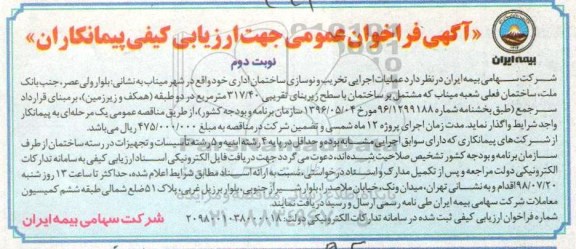 «آگهی فراخوان عمومی جهت ارزیابی کیفی پیمانکاران»
نوبت دوم
بیمه ایران
شرکت سهامی بیمه ایران در نظر دارد عملیات اجرایی تخریب و نوسازی ساختمان اداری خود واقع در شهر میناب به نشانی: بلوار ولی عصر، جنب بانک
ملت، ساختمان فعلی شعبه میناب که مشتمل بر ساختمان با سطح زیربنای تقریبی ۳۱۷/۴۰ مترمربع در دو طبقه (همکف و زیرزمین)، بر مبنای قرارداد
سرجمع (طبق بخشنامه شماره ۹۶/۱۲۹۹۱۸۸ مورخ ۱۳۹۶/۰۵/۰۴ سازمان برنامه و بودجه کشور)، از طریق مناقصه عمومی یک مرحله‌ای به پیمانکار
واجد شرایط واگذار نماید. مدت زمان اجرای پروژه ۱۲ ماه شمسی و تضمین شرکت در مناقصه به مبلغ ۴۷۵/۰۰۰/۰۰۰ ریال می‌باشد.
از شرکت‌های پیمانکاری که دارای سوابق اجرایی مشابه بوده و حداقل در پایه ۴ رشته ابنیه و ۵ رشته تأسیسات و تجهیزات در رسته ساختمان از طرف
سازمان برنامه و بودجه کشور تشخیص صلاحیت شده‌اند، دعوت می‌گردد جهت دریافت فایل الکترونیکی اسناد ارزیابی کیفی به سامانه تدارکات
الکترونیکی دولت مراجعه و پس از تکمیل مدارک و اسناد درخواستی، نسبت به ارائه اسناد مطابق شرایط اعلام شده، حداکثر تا ساعت ۱۳ روز شنبه
۹۸/۰۷/۲۰ اقدام و به نشانی تهران، میدان ونک، خیابان ملاصدرا، بلوار شیراز جنوبی، بلوار برزیل غربی، پلاک ۵۱ ضلع شمالی طبقه ششم کمیسیون
معاملات شرکت سهامی بیمه ایران طی نامه رسمی ارسال و رسید دریافت نمایند.
شماره فراخوان ارزیابی کیفی ثبت شده در سامانه تدارکات الکترونیکی دولت:
شرکت سهامی بیمه ایران